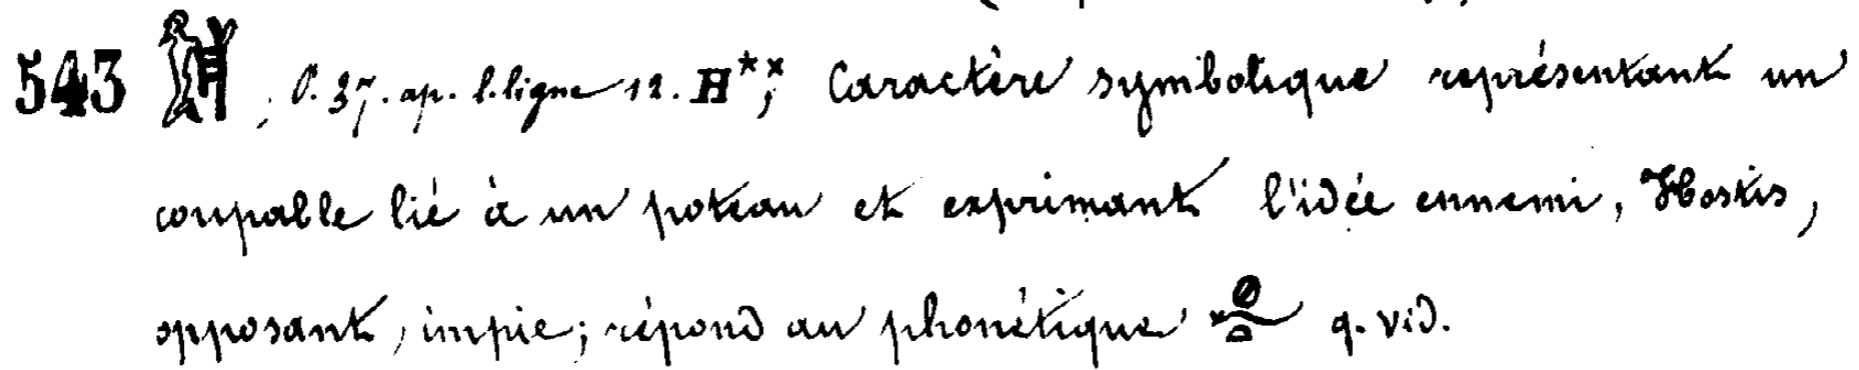 543 𓀏, P. 37. ap. l. ligne 12. H**; Caractère symbolique représentant un
coupable lié à un poteau et exprimant l'idée ennemi, Hostis,
opposant, impie; répond au phonétique q. vid.